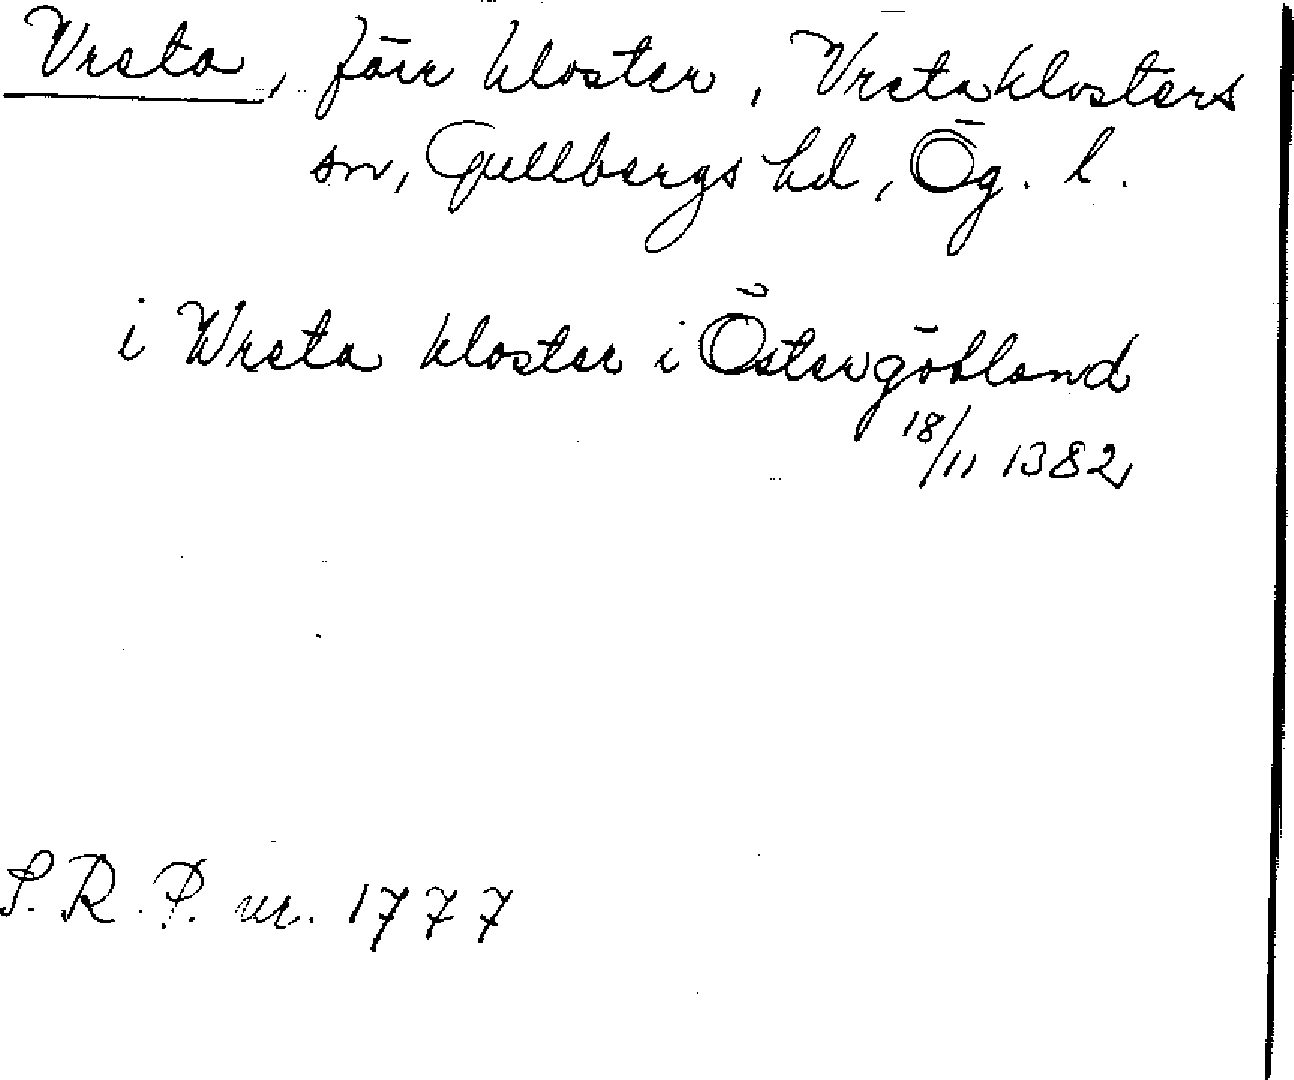 Vreta, förr kloster, Vretaklosters
sn, Gullbergs hd, Ög. l.
i Wreta kloster i Östergötland
18/11 1382
S.R.P. nr. 1777